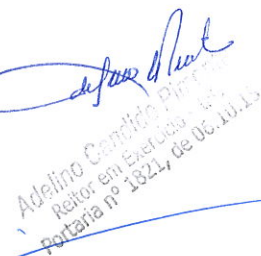 Adelino Candido
Reitor em Exercício
Portaria nº 1821, de 06.10.15